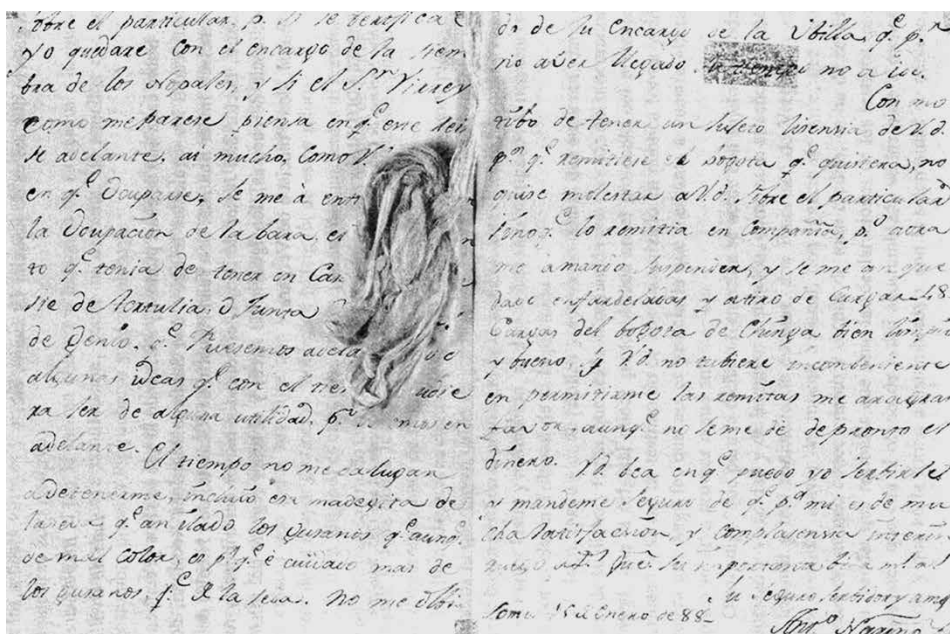 sobre el particular, p. si se verifica e
yo quedare con el encargo de la siem
bra de los Nopales, y si el S.r Virrey
como me parese piensa en q.e este
se adelante. ai mucho. como V.
en q.e Ocuparse, se me à
la Ocupacion de la bara. el
to q.e tenia de tener en Ca
sie de tertulia, ò Junta
de Genio. q.e Pusiesemos
algunas ideas q.e con el
ra ser de alguna utilidad, p.
adelante.
El tiempo no me da lugar
a detenerme, incluio esa madegita de
la seda q.e an ilado los Gusanos q.e aunq.
de mal color, es p.r q.e è cuidado mas de
los Gusanos, q.e de la seda. No me
de su encargo de la Ubilla, q.e p.r
no aver llegado no
Con mo
tibo de tener un sujeto lisensia de V.d
p.a q.e remitiese el bogota q.e quisiera, no
quise molestar a V.d. sobre el particular
sino q.e lo remitia en Compañia, p.o aora
me à mandò suspender, y se me an que
dado enfardeladas y a tiro de Cargar 48
Cargas del bogota de Chinga bien limpio
y bueno, si V.d no tubiere incombeniente
en permitirme las remitas me ara gran
favor, aunq.e no se me dè de pronto el
dinero. V.d vea en q.e puedo yo serbirle
y mandeme seguro de q.e p.a mi es de mu
cha satisfacion, y complasensia
ruego a D.s Que. su importante bida m.s a.s
Su seguro serbidor y amo
15 de Enero de 88
Ant.o Nariño